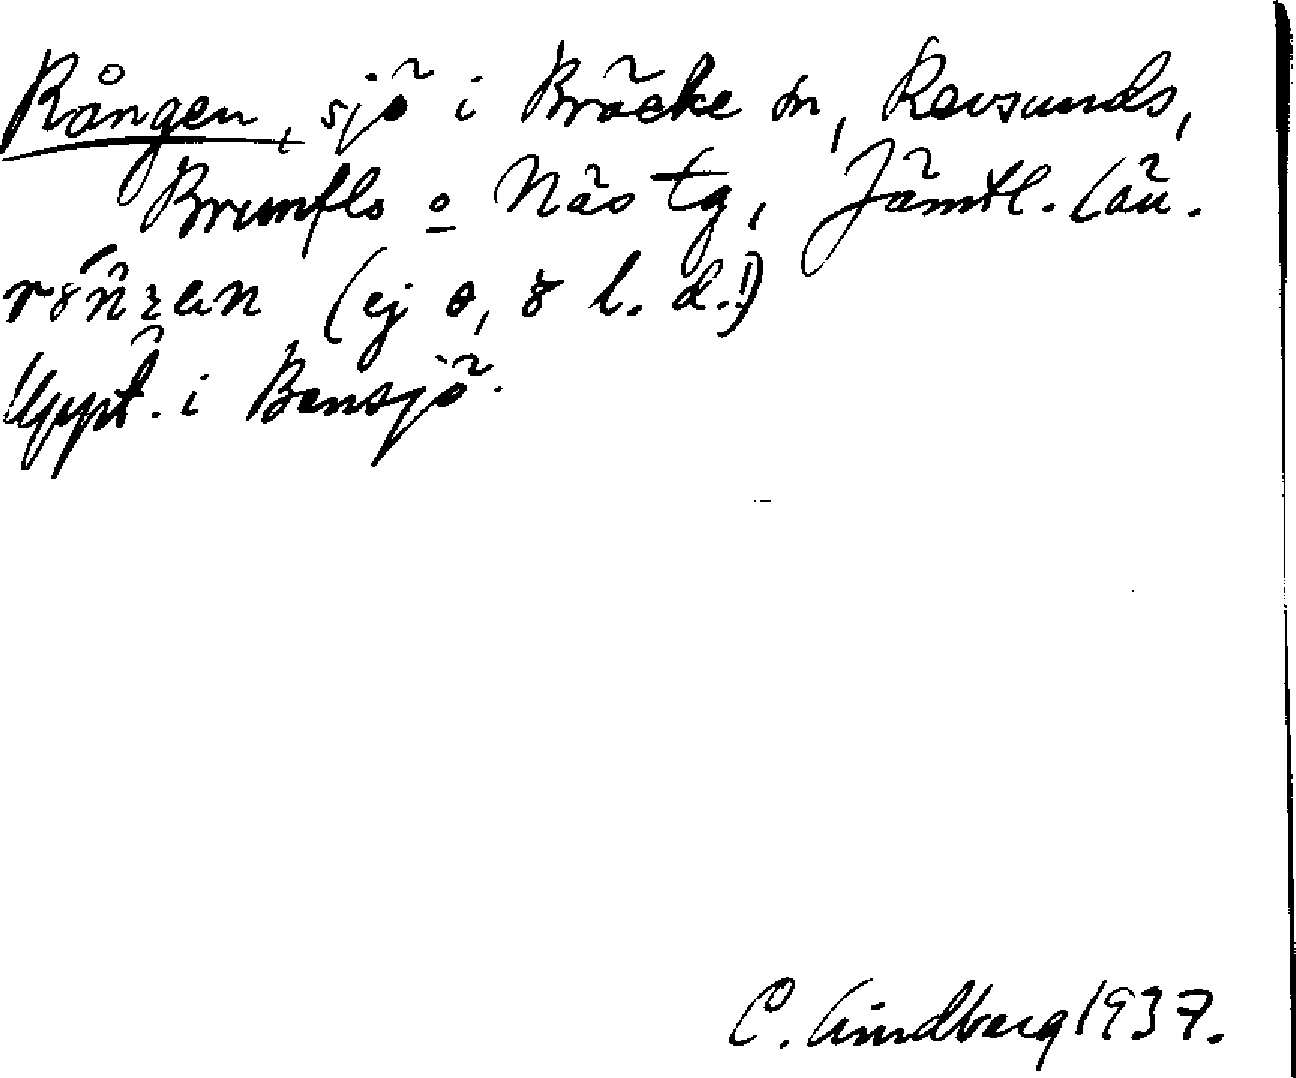 Rången, sjö i Bräcke sn, Revsunds,
Brunflo o Näs tg, Jämtl. län.
(ej o, 8 l. d.!)
Uppt. i Bensjö.
C. Lindberg 1937.